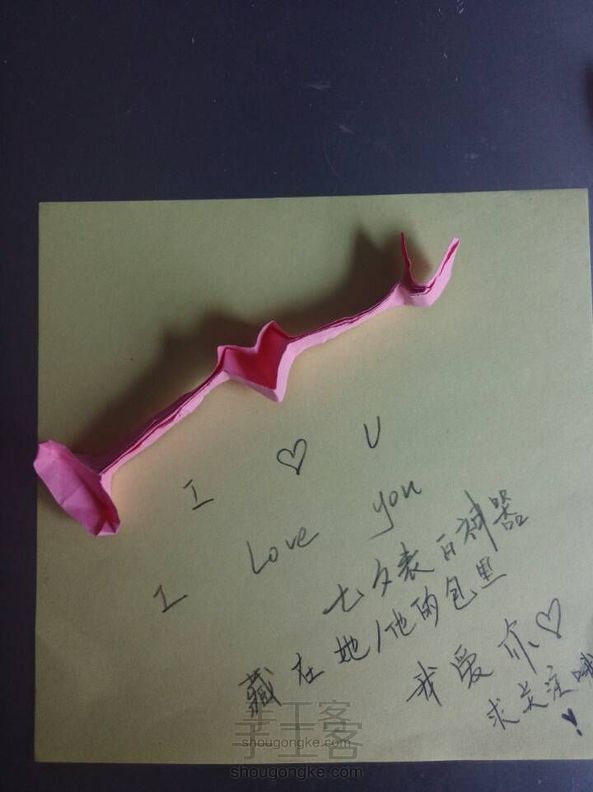 I ♡ U
I Love you
七夕表白神器
藏在她/他的包里
我爱你♡
求关注哦
手工客
shougongke.com
手工客
shougongke.com